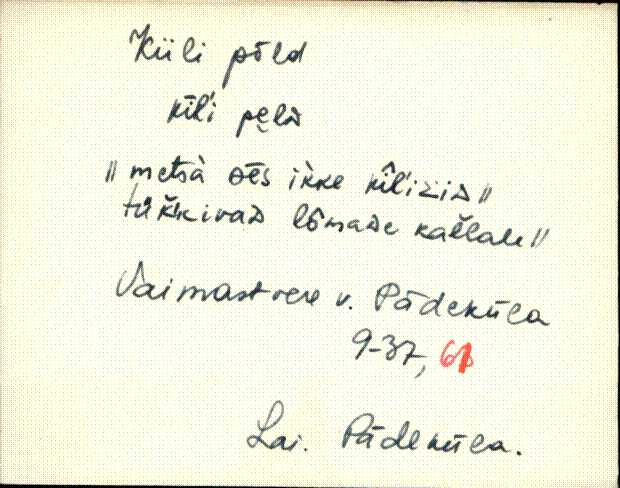 Küli põld
kīl'i pe̬lᴅ
" metsà ot̄s ikke kîl'iziᴅ "
tükkivaᴅ lômaᴅe kallale "
Vaimastvere v. Pādeküla
9-37, 61
Lai. Pādeküla.